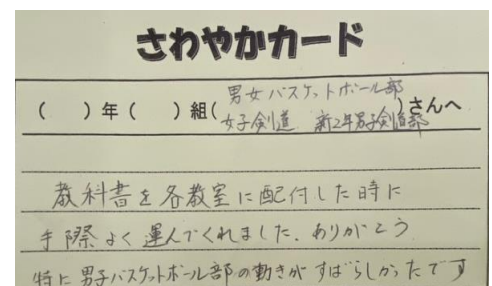 さわやかカード
男女バスケットボール部
(　)年(　)組(女子剣道 新2年男子剣道部)さんへ
教科書を各教室に配付した時に
手際よく運んでくれました。ありがとう
特に男子バスケットボール部の動きがすばらしかったです